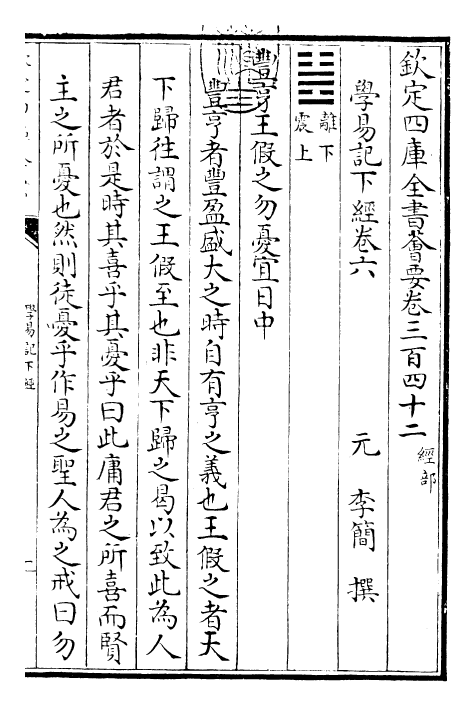 欽定四庫全書薈要卷三百四十二經部
學易記下經卷六
元 李簡 撰
離下
震上
豐亨王假之勿憂宜日中
豐亨者豐盈盛大之時自有亨之義也王假之者天
下歸往謂之王假至也非天下歸之曷以致此為人
君者於是時其喜乎其憂乎曰此庸君之所喜而賢
主之所憂也然則徒憂乎作易之聖人為之戒曰勿
學易記下經